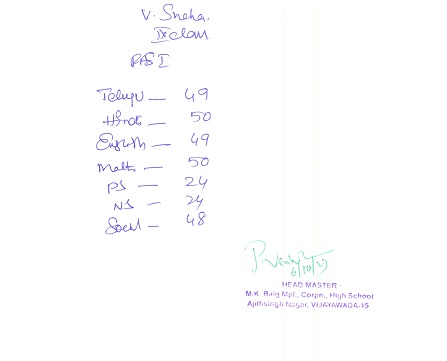 V. Sneha.
IX class
FAS I
Telugu — 49
Hindi — 50
English — 49
Maths — 50
PS — 24
NS — 24
Social — 48
HEAD MASTER
M.K. Baig Mpl., Corpn., High School
Ajithsingh Nagar, VIJAYAWADA-15